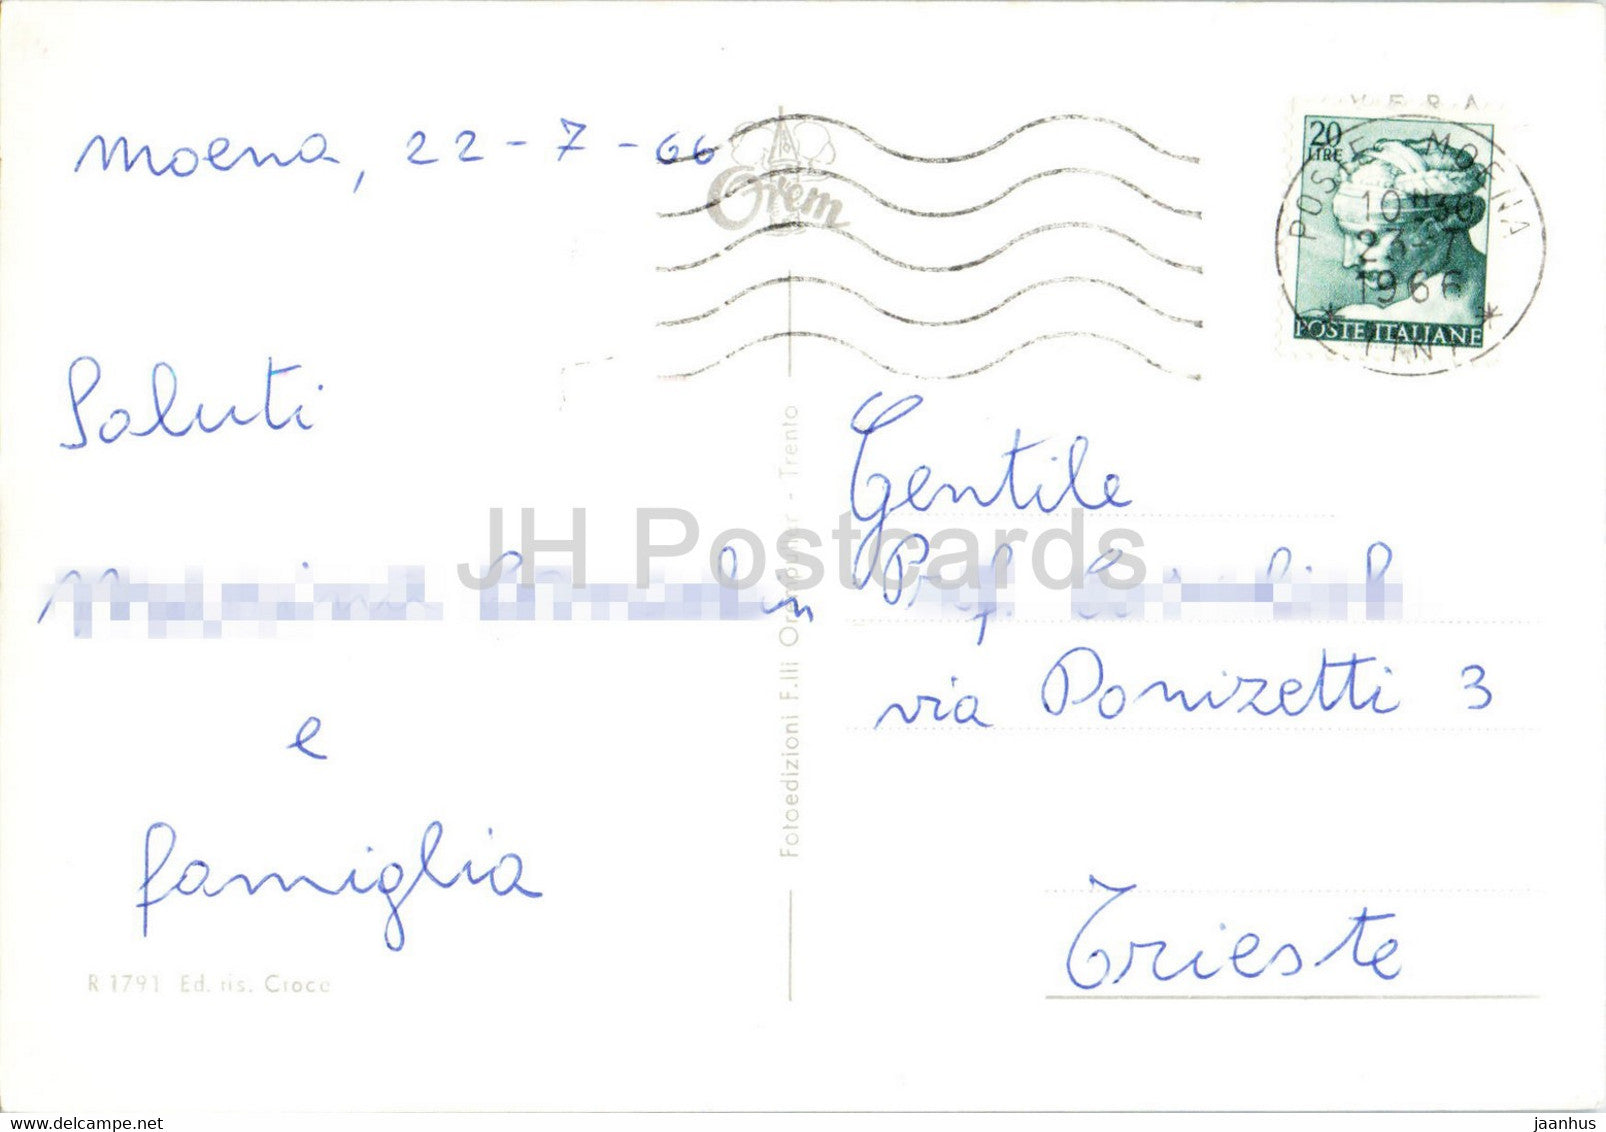 Moena, 22-7-66
Orem
20
LIRE
POSTE MOENA
10H30
23-7
1966
POSTE ITALIANE
Saluti
e
famiglia
Gentile
Prof.
via Donizetti 3
Trieste
Fotoedizioni F.lli Orempuller - Trento
R 1791 Ed. ris. Croce
JH Postcards
delcampe.net
jaanhus